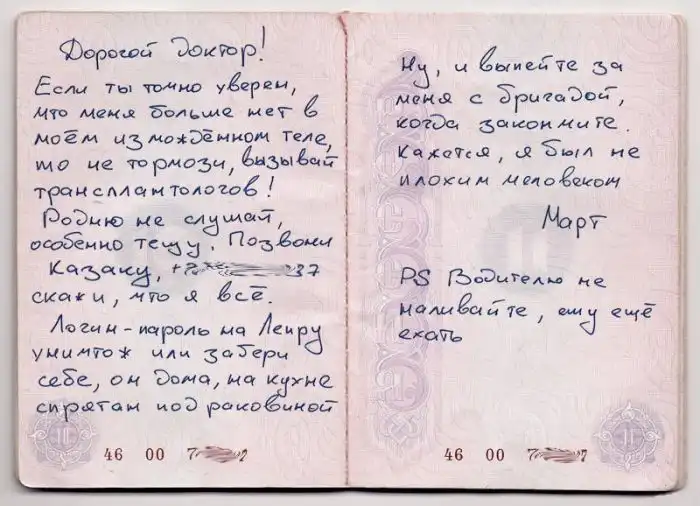 Дорогой Доктор!
Если ты точно уверен,
что меня больше нет в
моём измождённом теле,
то не тормози, вызывай
трансплантологов!
Родню не слушай,
особенно тещу. Позвони
Казаку, +7 37
скажи, что я всё.
Логин-пароль на Лепру
уничтож или забери
себе, он дома, на кухне
спрятан под раковиной
46 00 7
Ну, и выпейте за
меня с бригадой,
когда закончите.
Кажется, я был не
плохим человеком
Март
PS Водителю не
наливайте, ему ещё
ехать
46 00 7